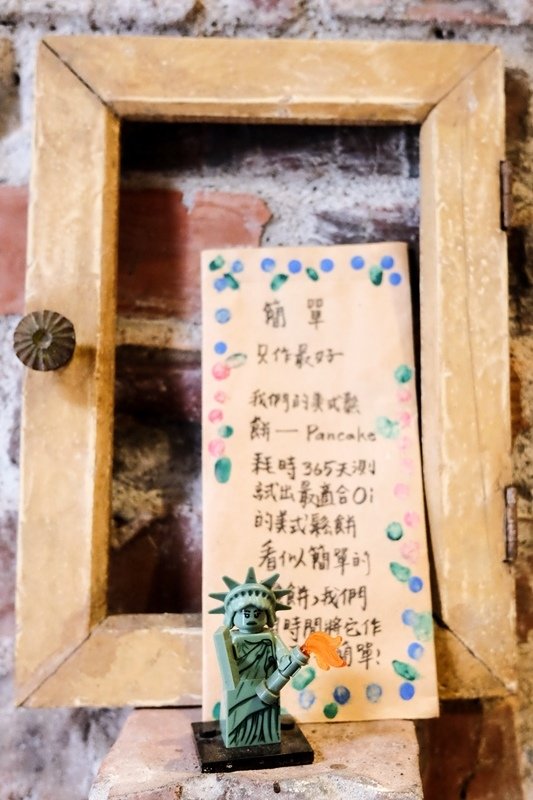 簡單
只作最好
我們的美式鬆
餅一 Pancake
耗時365天測
試出最適合Oi
的美式鬆餅
看似簡單的
餅,我們
時間將它作
簡單!